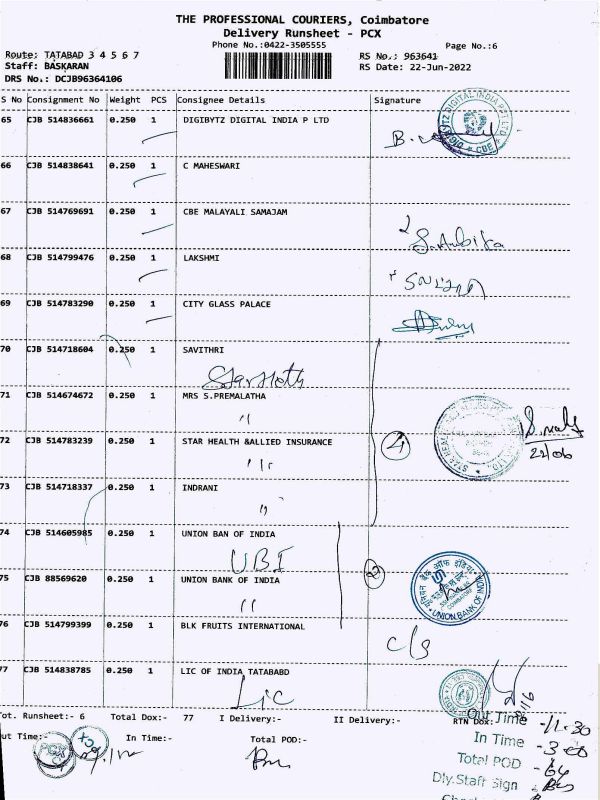 THE PROFESSIONAL COURIERS, Coimbatore
Delivery Runsheet - PCX
Phone No.:0422-3505555
Page No.:6
Route: TATABAD 3 4 5 6 7
RS No.: 963641
Staff: BASKARAN
RS Date: 22-Jun-2022
DRS No.: DCJB96364106
S No Consignment No Weight PCS Consignee Details Signature
65 CJB 514836661 0.250 1 DIGIBYTZ DIGITAL INDIA P LTD
66 CJB 514838641 0.250 1 C MAHESWARI
67 CJB 514769691 0.250 1 CBE MALAYALI SAMAJAM
68 CJB 514799476 0.250 1 LAKSHMI
69 CJB 514783290 0.250 1 CITY GLASS PALACE
70 CJB 514718604 0.250 1 SAVITHRI
Star Health
71 CJB 514674672 0.250 1 MRS S.PREMALATHA
72 CJB 514783239 0.250 1 STAR HEALTH &ALLIED INSURANCE
4
22/06
73 CJB 514718337 0.250 1 INDRANI
74 CJB 514605985 0.250 1 UNION BAN OF INDIA
UBI
75 CJB 88569620 0.250 1 UNION BANK OF INDIA
2
UNION BANK OF INDIA
76 CJB 514799399 0.250 1 BLK FRUITS INTERNATIONAL
c/s
77 CJB 514838785 0.250 1 LIC OF INDIA TATABABD
Lic
Tot. Runsheet:- 6 Total Dox:- 77 I Delivery:- II Delivery:- RTN Dox:
Out Time:- In Time:- Total POD:-
PCX
Out Time -11.30
In Time -3.00
Total POD -64
Dly.Staff Sign